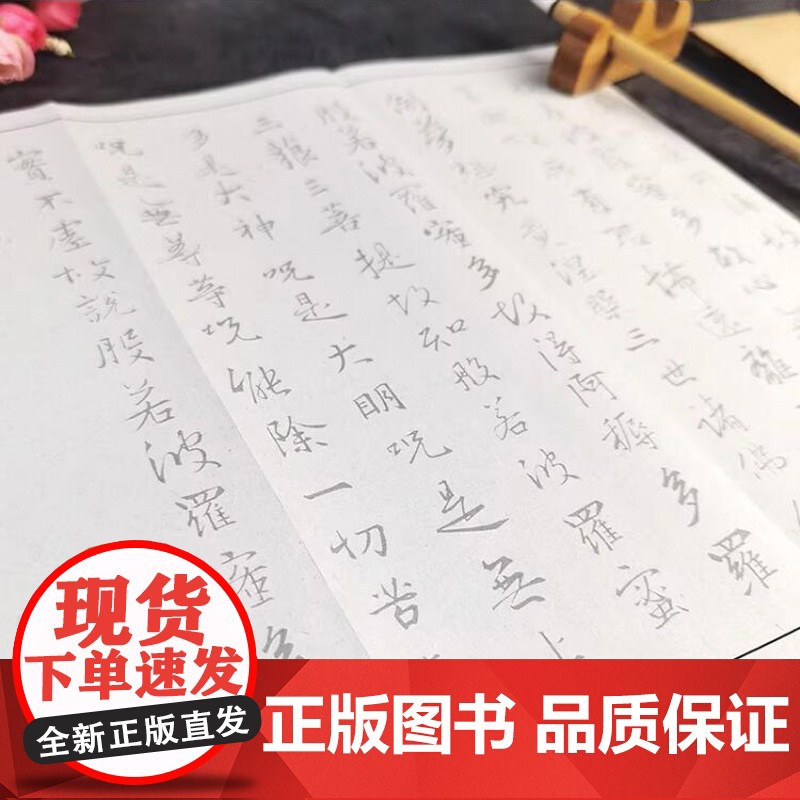 有恐怖遠離
夢想究竟涅槃三世諸佛
般若波羅蜜多故得阿耨多羅
三藐三菩提故知般若波羅蜜
多是大神咒是大明咒是無上
咒是無等等咒能除一切苦
實不虛故說般若波羅蜜多
现货
全新正版直发
正版图书 品质保证